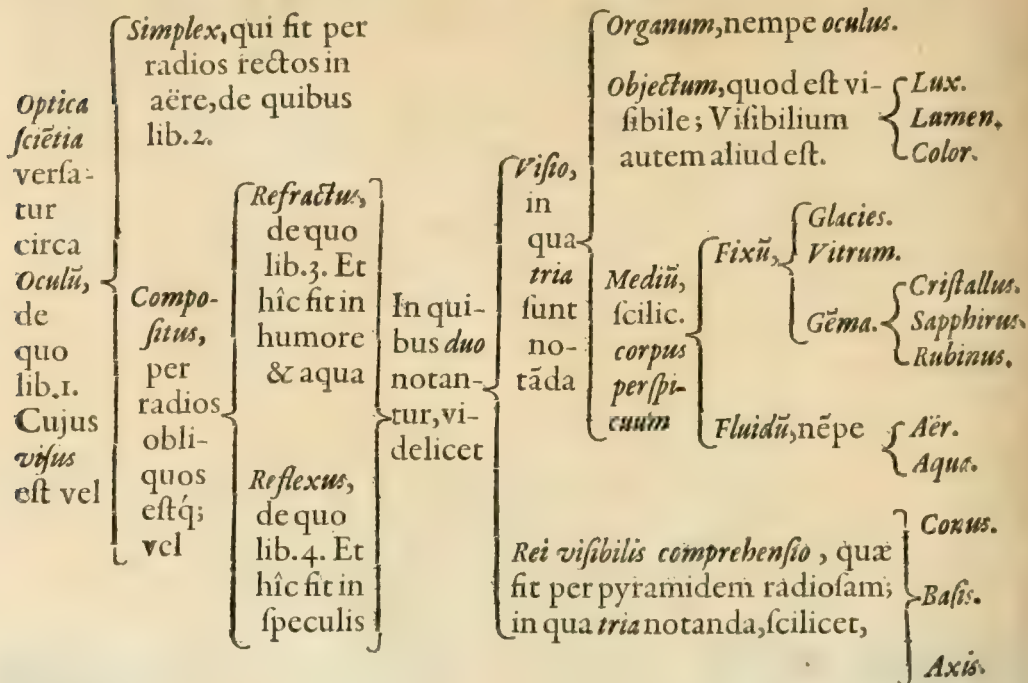 Optica
ſciẽtia
verſa-
tur
circa
Oculũ,
de
quo
lib.1.
Cujus
viſus
eſt vel
Simplex, qui fit per
radios rectos in
aëre, de quibus
lib.2.
Compo-
ſitus,
per
radios
obli-
quos
eſtq́;
vel
Refractus,
de quo
lib.3. Et
hîc fit in
humore
& aqua
Reflexus,
de quo
lib.4. Et
hîc fit in
ſpeculis
In qui-
bus duo
notan-
tur, vi-
delicet
Viſio,
in
qua
tria
ſunt
no-
tãda
Organum, nempe oculus.
Objectum, quod eſt vi-
ſibile; Viſibilium
autem aliud eſt.
Lux.
Lumen.
Color.
Mediũ,
ſcilic.
corpus
perſpi-
cuum
Fixũ,
Glacies.
Vitrum.
Gẽma.
Criſtallus.
Sapphirus.
Rubinus.
Fluidũ, nẽpe
Aër.
Aqua.
Rei viſibilis comprehenſio, quæ
fit per pyramidem radioſam;
in qua tria notanda, ſcilicet,
Conus.
Baſis.
Axis.